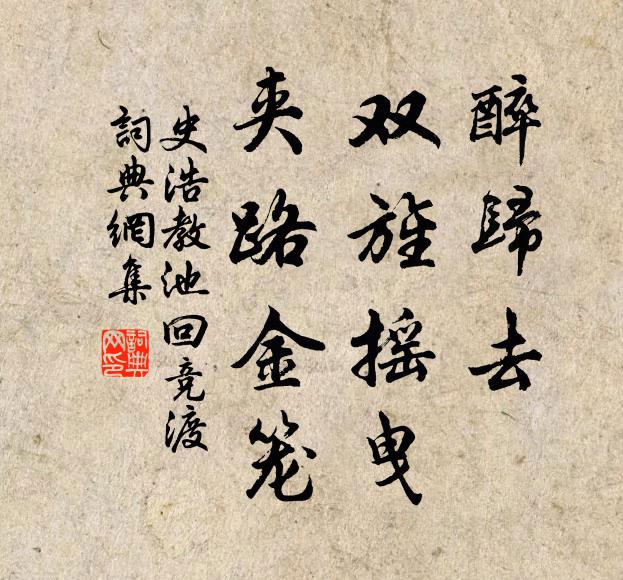 醉歸去
双旌摇曳
夹路金笼
史浩教池回竞渡
詞典網集
詞典网印